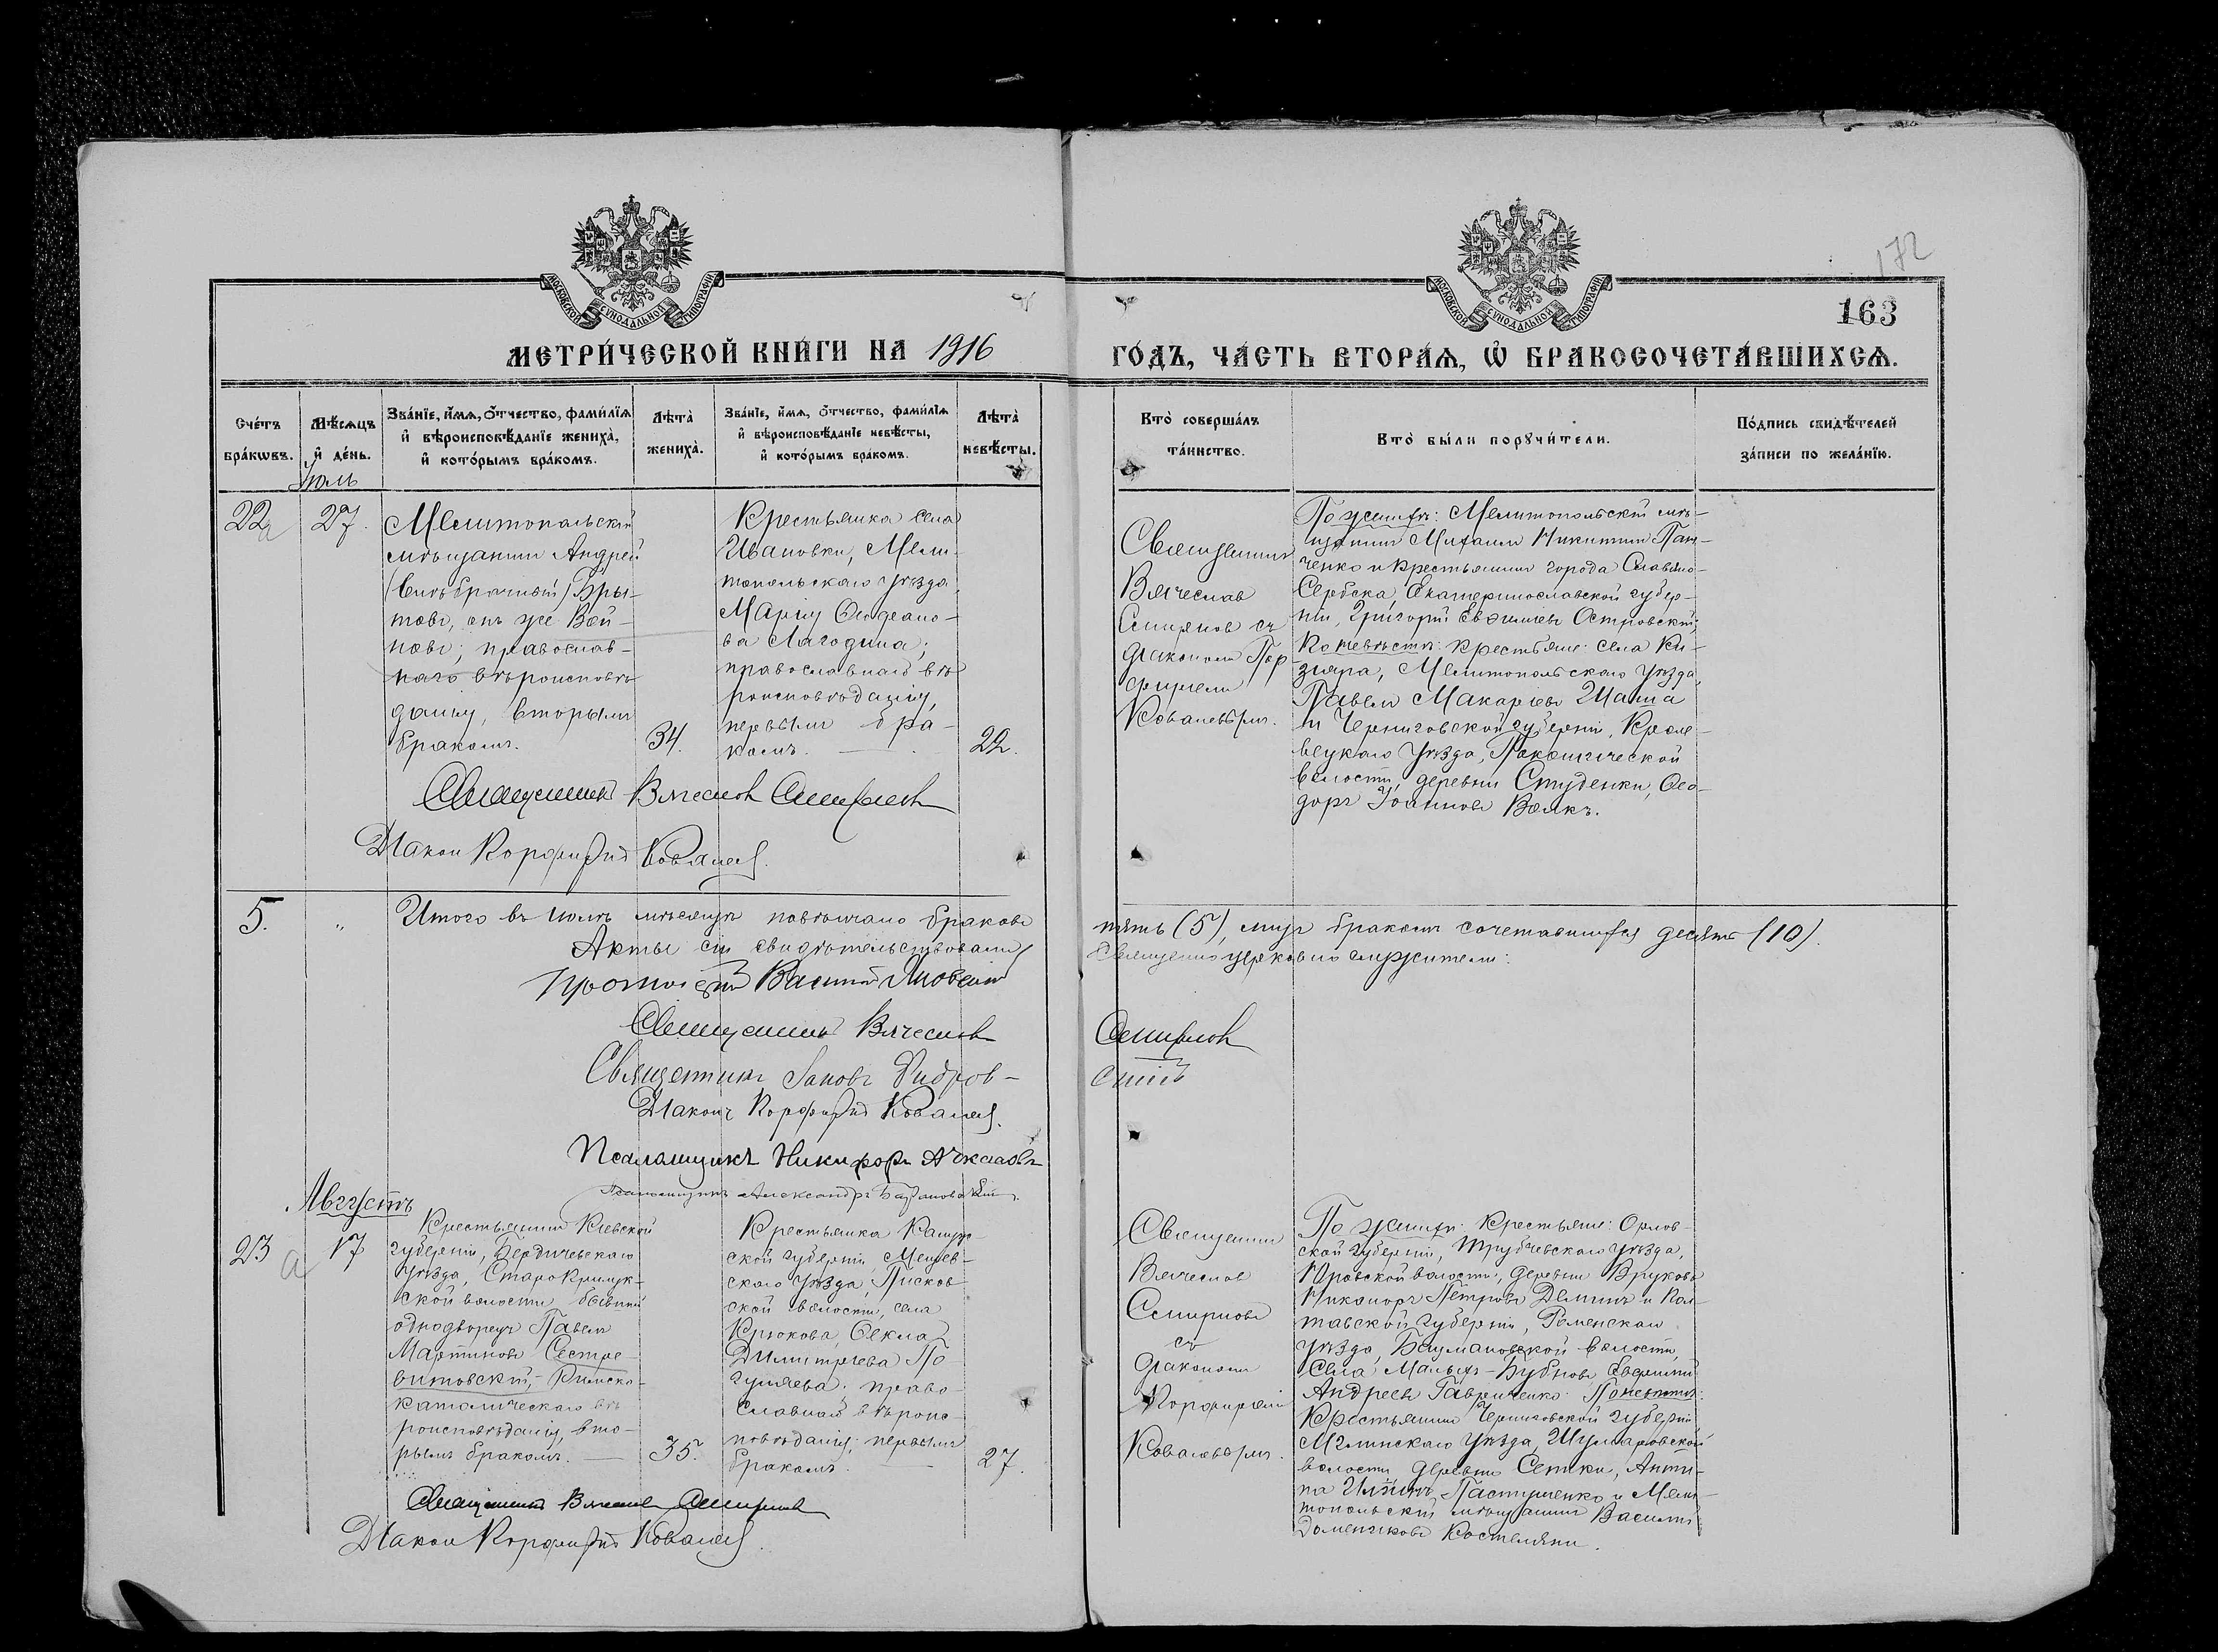 172
163
МОСКОВСКОЙ СѴНОДАЛЬНОЙ ТИПОГРАФІИ
МОСКОВСКОЙ СѴНОДАЛЬНОЙ ТИПОГРАФІИ
МЕТРИ́ЧЕСКОЙ КНИ́ГИ НА 1916
ГО́ДЪ, ЧА́СТЬ ВТОРА́Ѧ, Ѡ҆ БРАКОСОЧЕТА́ВШИХСѦ.
Сче́тъ
бра́кѡвъ.
Мѣ́сѧцъ
и҆ де́нь.
Зва́нїе, и҆́мѧ, ѻ҆́тчество, фами́лїѧ
и҆ вѣроисповѣ́данїе жениха̀,
и҆ кото́рымъ бра́комъ.
Лѣ́та̀
жениха̀.
Зва́нїе, и҆́мѧ, ѻ҆́тчество, фами́лїѧ
и҆ вѣроисповѣ́данїе невѣ́сты,
и҆ кото́рымъ бра́комъ.
Лѣ́та̀
невѣ́сты.
Кто̀ соверша́лъ
та́инство.
Кто̀ бы́ли порꙋчи́тели.
По́дпись свидѣ́телей
за́писи по жела́нїю.
Іюль
22
а
27.
Мелитопольскій
мѣщанинъ Андрей
(внѣбрачный) Бры-
товъ, онъ же Вой-
новъ; православ-
наго вѣроисповѣ-
данія, вторымъ
бракомъ.
34.
Крестьянка села
Ивановки, Мели-
топольскаго уѣзда,
Марія Ѳеодоно-
ва Лагодина;
православнаго вѣ-
роисповѣданія,
первымъ бра-
комъ.
22.
Священникъ
Вячеслав
Смирнов съ
діакономъ Пор-
фиріемъ
Ковалевымъ.
По женихѣ: Мелитопольскій мѣ-
щанинъ Михаилъ Никитинъ Пан-
ченко и крестьянинъ города Славяно-
Сербска, Екатеринославской губер-
ніи, Григорій Евѳиміевъ Островскій;
По невѣстѣ: крестьяне: села Ки-
зіяра, Мелитопольскаго уѣзда,
Павелъ Макаріевъ Шаша
и Черниговской губерніи, Кроле-
вецкаго уѣзда,
волости, деревни Студенки, Ѳео-
доръ Іоанновъ Волкъ.
Священникъ Вячеславъ Смирновъ
Діаконъ Порфирій Ковалевъ.
5.
"
Итого въ іюлѣ мѣсяцѣ повѣнчано браковъ
пять (5), лицъ бракомъ сочетавшихся десять (10).
Акты сіи свидѣтельствовали
Священно церковно служители:
Протоіерей Василій Яновскій
Священникъ Вячеславъ
Смирновъ
Священникъ Іаковъ
скій
Діаконъ Порфирій Ковалевъ.
Псаломщикъ Никифоръ
Псаломщикъ Александръ
Августъ
23
а
17
Крестьянинъ Кіевской
губерніи, Бердичевскаго
уѣзда, Старокрилук-
ской волости бывшій
однодворецъ Павелъ
Мартиновъ Сестре-
витовскій, Римско-
католическаго вѣ-
роисповѣданія, вто-
рымъ бракомъ.
35.
Крестьянка Калуж-
ской губерніи, Мещов-
скаго уѣзда, Писков-
ской волости, села
Крюкова Ѳекла
Димитріева По-
гуляева; право-
славнаго вѣроис-
повѣданія, первымъ
бракомъ.
27.
Священникъ
Вячеславъ
Смирновъ
съ
діакономъ
Порфиріемъ
Ковалевымъ.
По женихѣ: крестьяне: Орлов-
ской губерніи, Трубчевскаго уѣзда,
Юровской волости, деревни
Никаноръ Петровъ Деминъ и Пол-
тавской губерніи, Роменскаго
уѣзда, волости,
села Малыхъ-Бубновъ, Евѳимій
Андреевъ Гавриленко. По невѣстѣ:
Крестьянинъ Черниговской губерніи
Мглинскаго уѣзда, Шумаровской
волости деревни Сетки, Анти-
па Ильинъ Пастушенко и Мели-
топольскій мѣщанинъ Василій
Костелянъ.
Священникъ Вячеславъ Смирновъ
Діаконъ Порфирій Ковалевъ.